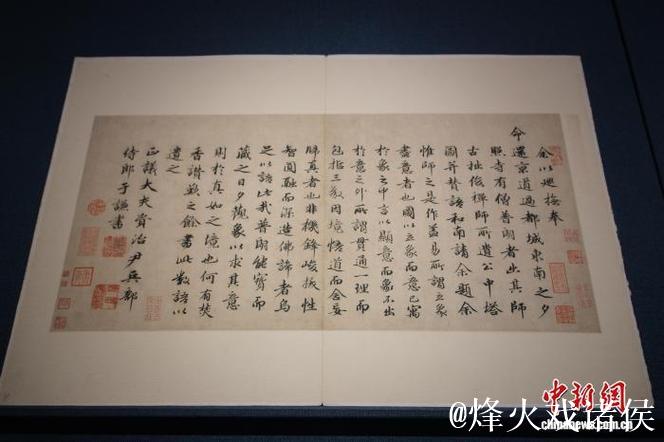 余以巡撫奉
命還京道過都城東南之夕
照寺有僧普朗者出其師
古拙俊禪師所遺公中塔
圖并贊語和南請余題余
惟師之是作蓋易所謂立象
盡意者也圖以立象而意已寓
於象之中言以顯意而象不出
於意之外所謂貫通一理而
包括三教因境悟道而舍妄
歸真者也非機鋒峻拔性
智圓融而深造佛諦者烏
足以語此哉普朗能寶而
藏之日夕觀象以求其意
則於真如之境也何有焚
香讚歎之餘書此數語以
遺之
正議大夫資治尹兵部
侍郎于謙書
中新網
chinanews.com
@烽火戏诸侯